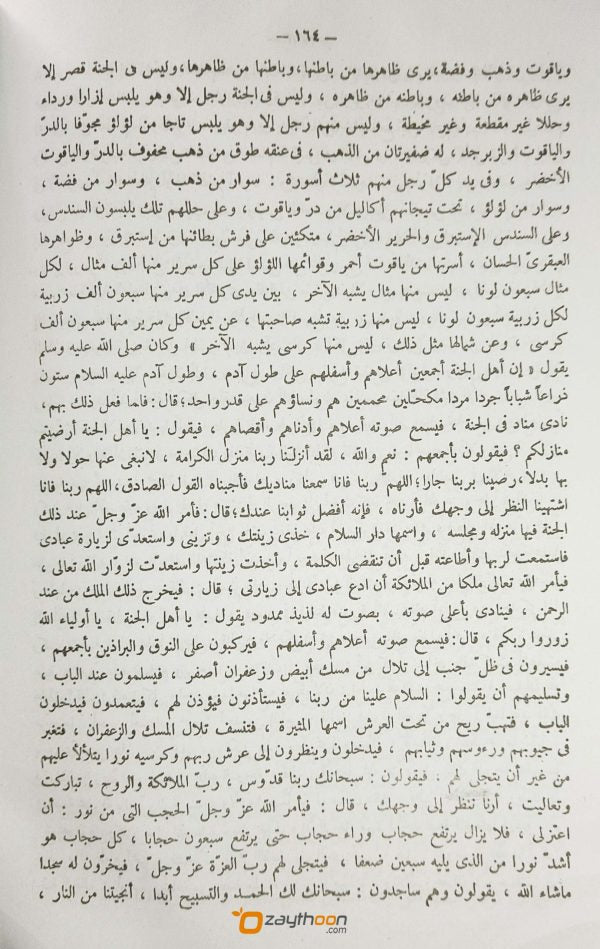 – ١٦٤ –
وياقوت وذهب وفضة، يرى ظاهرها من باطنها، وباطنها من ظاهرها، وليس فى الجنة قصر إلا
يرى ظاهره من باطنه ، وباطنه من ظاهره ، وليس فى الجنة رجل إلا وهو يلبس إزارا ورداء
وحللا غير مقطعة وغير مخيطة ، وليس منهم رجل إلا وهو يلبس تاجا من لؤلؤ مجوّفا بالدرّ
والياقوت والزبرجد ، له ضفيرتان من الذهب ، فى عنقه طوق من ذهب محفوف بالدرّ والياقوت
الأخضر ، وفى يد كلّ رجل منهم ثلاث أسورة : سوار من ذهب ، وسوار من فضة ،
وسوار من لؤلؤ ، تحت تيجانهم أكاليل من درّ وياقوت ، وعلى حللهم تلك يلبسون السندس،
وعلى السندس الإستبرق والحرير الأخضر، متكئين على فرش بطائنها من إستبرق ، وظواهرها
العبقرىّ الحسان ، أسرتها من ياقوت أحمر وقوائمها اللؤلؤ على كل سرير منها ألف مثال ، لكل
مثال سبعون لونا ، ليس منها مثال يشبه الآخر ، بين يدى كل سرير منها سبعون ألف زربية
لكل زربية سبعون لونا ، ليس منها زربية تشبه صاحبتها ، عن يمين كل سرير منها سبعون ألف
كرسى ، وعن شمالها مثل ذلك ، ليس منها كرسى يشبه الآخر » وكان صلى الله عليه وسلم
يقول « إن أهل الجنة أجمعين أعلاهم وأسفلهم على طول آدم ، وطول آدم عليه السلام ستون
ذراعاً شباباً جردا مردا مكحّلين محممين هم ونساؤهم على قدر واحد؛ قال: فلما فعل ذلك بهم،
نادى مناد فى الجنة ، فيسمع صوته أعلاهم وأدناهم وأقصاهم ، فيقول : يا أهل الجنة أرضيتم
منازلكم ؟ فيقولون بأجمعهم : نعم والله ، لقد أنزلنا ربنا منزل الكرامة ، لانبغى عنها حولا ولا
بها بدلا، رضينا بربنا جارا؛ اللهمّ ربنا فانا سمعنا مناديك فأجبناه القول الصادق، اللهم ربنا فانا
اشتهينا النظر إلى وجهك فأرناه ، فإنه أفضل ثوابنا عندك؛ قال: فأمر الله عزّ وجلّ عند ذلك
الجنة فيها منزله ومجلسه ، واسمها دار السلام ، خذى زينتك ، وتزينى واستعدّى لزيارة عبادى
فاستمعت لربها وأطاعته قبل أن تنقضى الكلمة ، وأخذت زينتها واستعدّت لزوّار الله تعالى ،
فيأمر الله تعالى ملكا من الملائكة أن ادع عبادى إلى زيارتى ؛ قال : فيخرج ذلك الملك من عند
الرحمن ، فينادى بأعلى صوته ، بصوت له لذيذ ممدود يقول : يا أهل الجنة ، يا أولياء الله
زوروا ربكم ، قال: فيسمع صوته أعلاهم وأسفلهم ، فيركبون على النوق والبراذين بأجمعهم ،
فيسيرون فى ظلّ جنب إلى تلال من مسك أبيض وزعفران أصفر ، فيسلمون عند الباب ،
وتسليمهم أن يقولوا : السلام علينا من ربنا ، فيستأذنون فيؤذن لهم ، فيتعمدون فيدخلون
الباب ، فتهبّ ريح من تحت العرش اسمها المثيرة ، فتنسف تلال المسك والزعفران ، فتغبر
فى جيوبهم ورءوسهم وثيابهم ، فيدخلون وينظرون إلى عرش ربهم وكرسيه نورا يتلألأ عليهم
من غير أن يتجلى لهم ، فيقولون : سبحانك ربنا قدّوس ، ربّ الملائكة والروح ، تباركت
وتعاليت ، أرنا ننظر إلى وجهك ، قال : فيأمر الله عزّ وجلّ الحجب التى من نور : أن
اعتزلى ، فلا يزال يرتفع حجاب وراء حجاب حتى يرتفع سبعون حجابا ، كل حجاب هو
أشدّ نورا من الذى يليه سبعين ضعفا ، فيتجلى لهم ربّ العزّة عزّ وجلّ ، فيخرّون له سجدا
ماشاء الله ، يقولون وهم ساجدون : سبحانك لك الحمد والتسبيح أبدا ، أنجيتنا من النار ،
zaythoon
.com